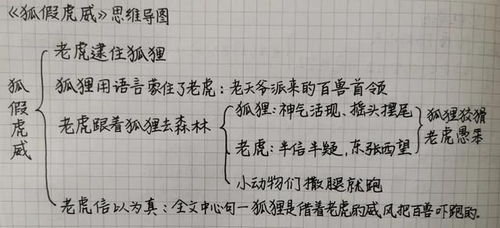 《狐假虎威》思维导图
老虎逮住狐狸
狐假虎威
狐狸用语言蒙住了老虎：老天爷派来的百兽首领
老虎跟着狐狸去森林
狐狸：神气活现、摇头摆尾
老虎：半信半疑，东张西望
狐狸狡猾
老虎愚笨
小动物们撒腿就跑
老虎信以为真：全文中心句一狐狸是借着老虎的威风把百兽吓跑的。